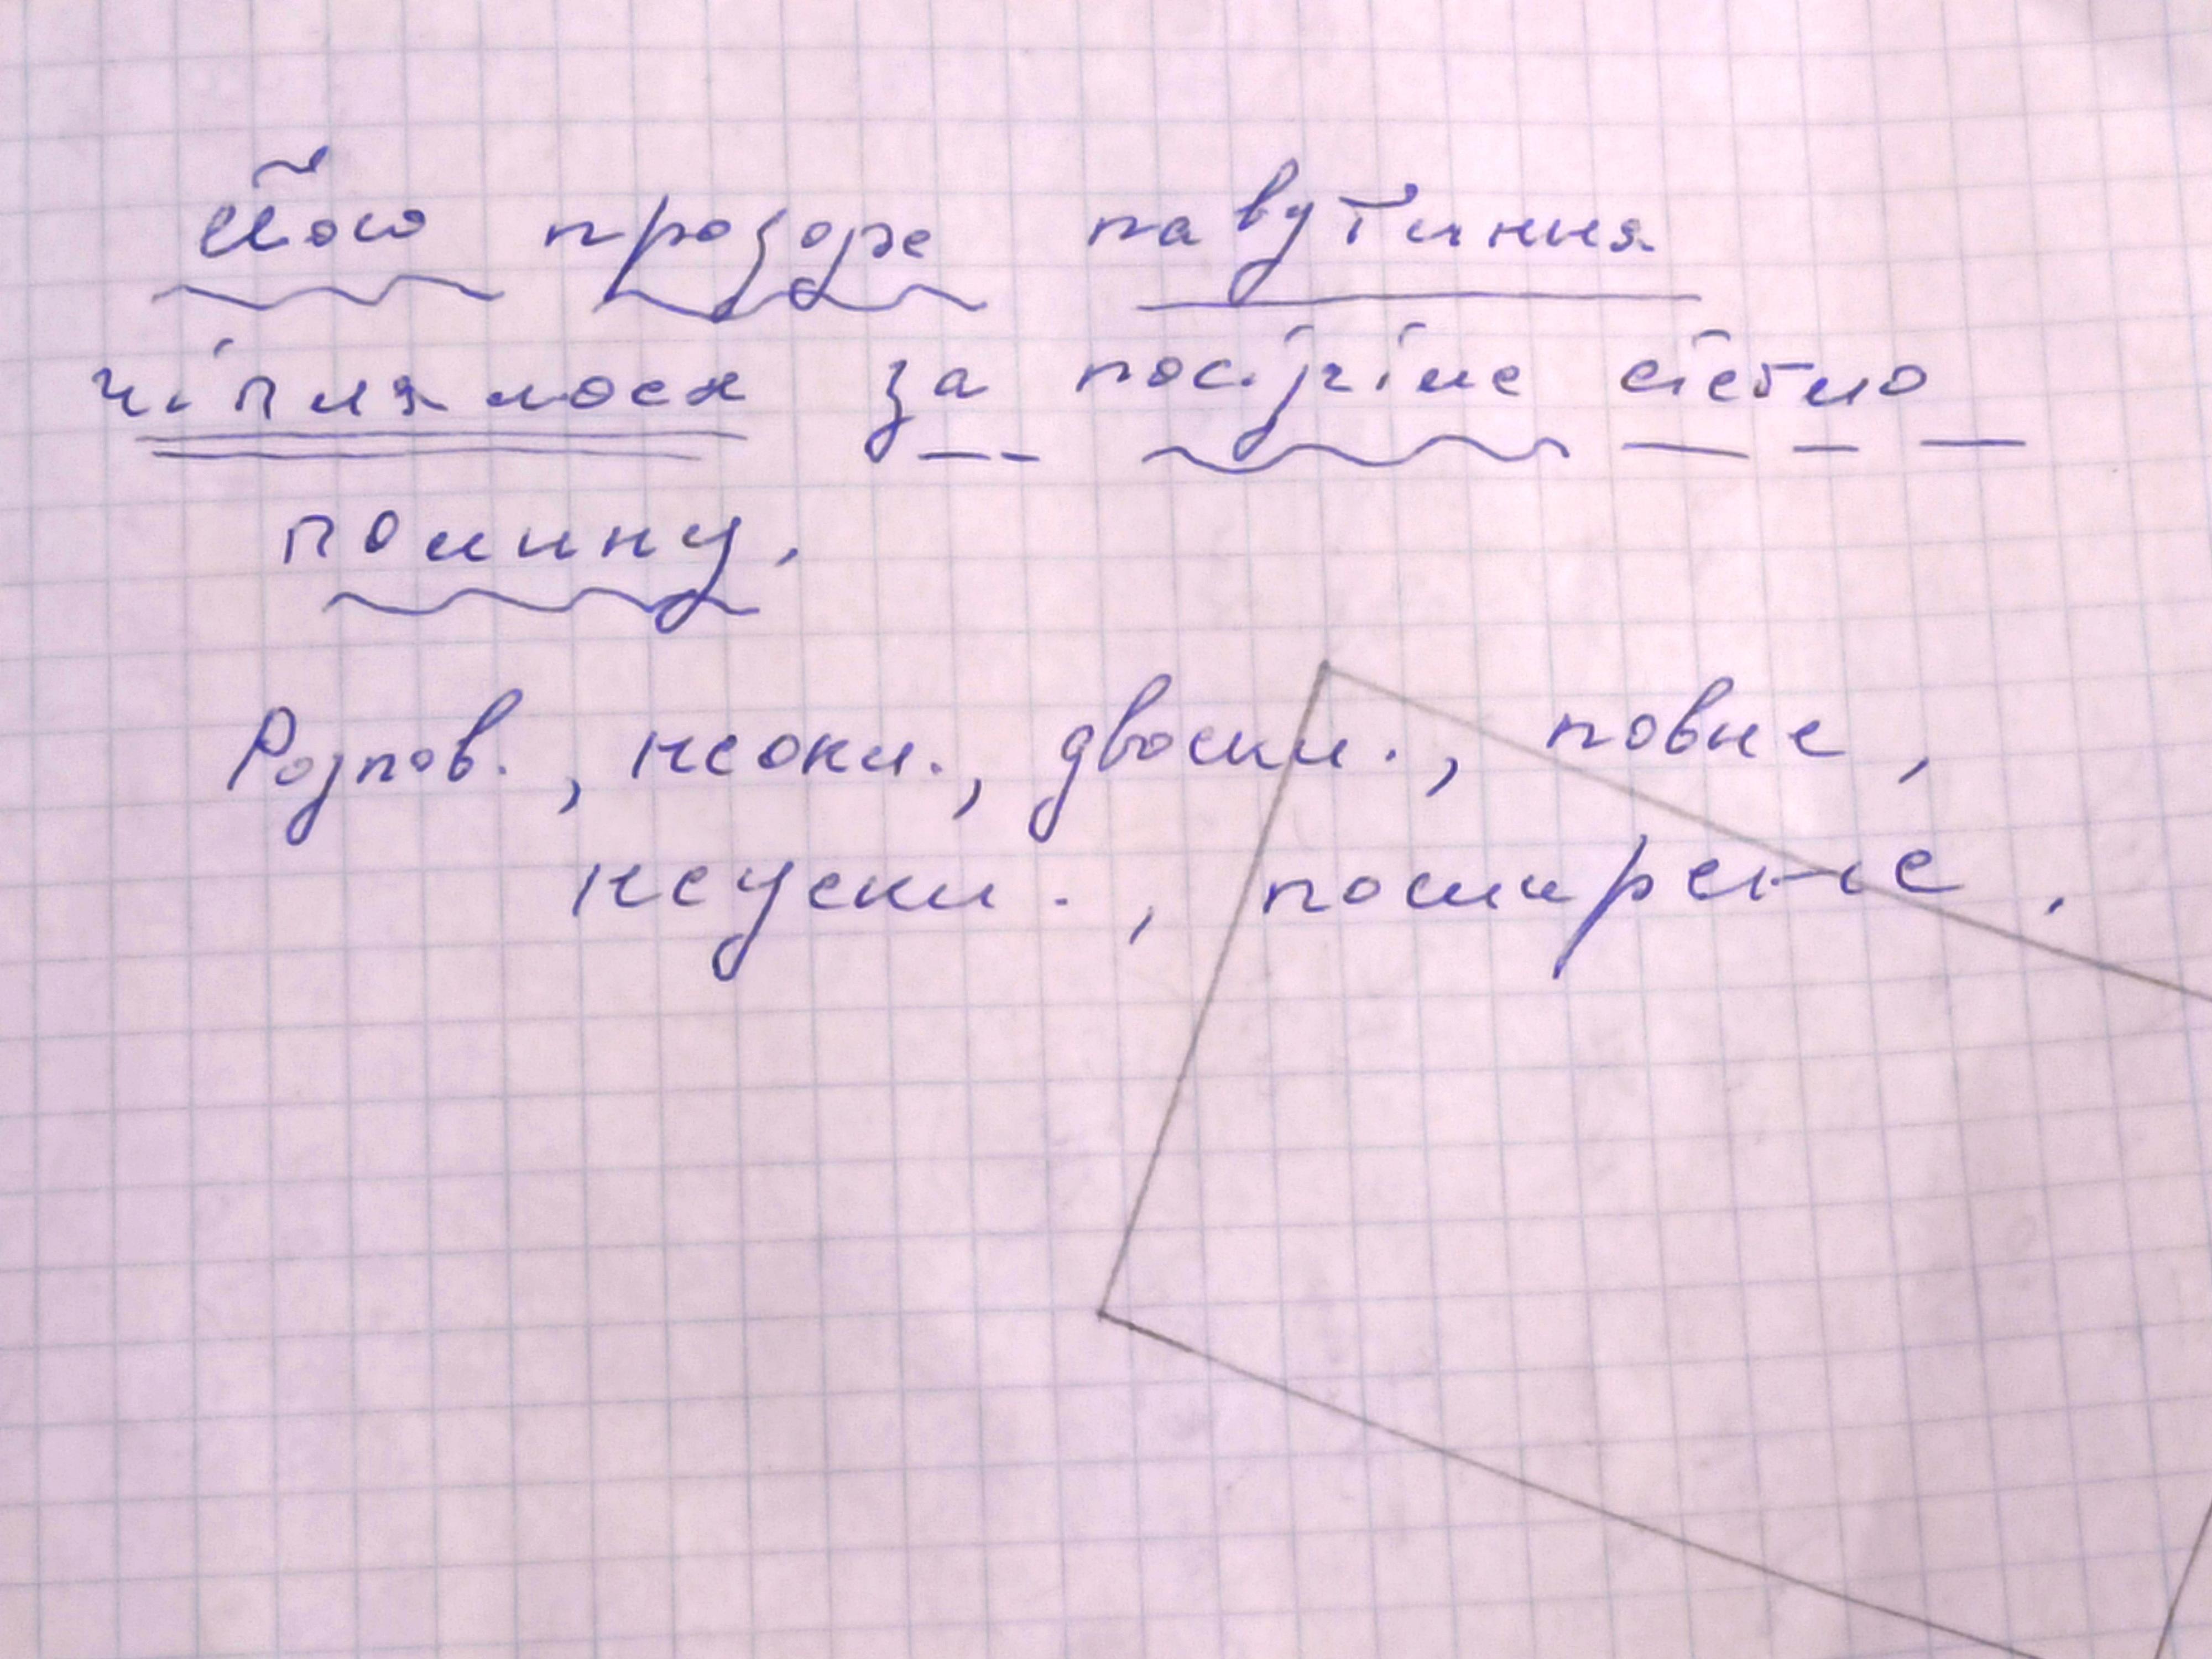 Його прозоре павутиння
чіплялося за посіріле стебло
полину.
Розпов., неокл., двоскл., повне,
неускл., поширене.